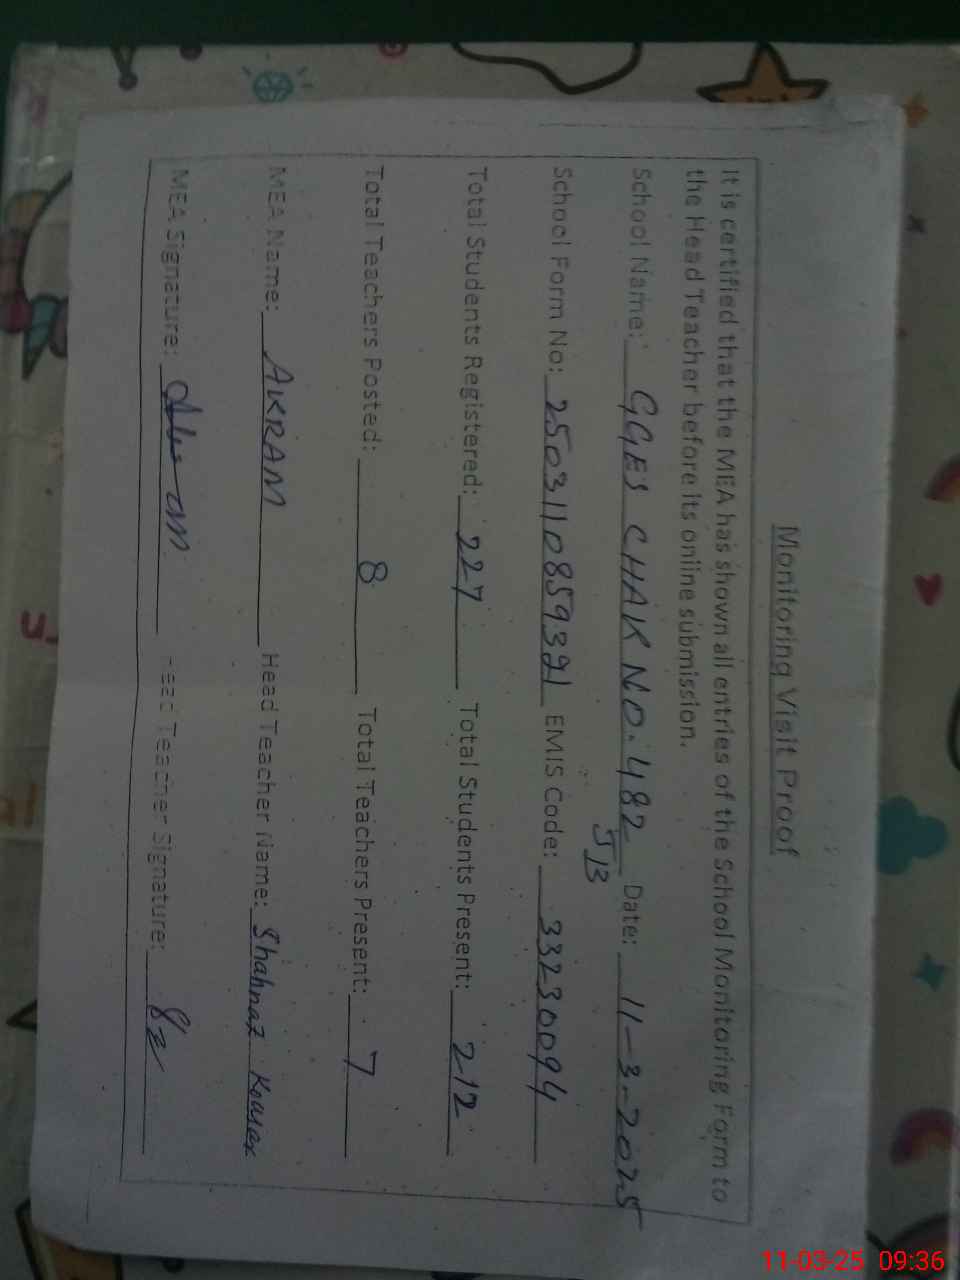 Monitoring Visit Proof
It is certified that the MEA has shown all entries of the School Monitoring Form to
the Head Teacher before its online submission.
School Name: GGES CHAK NO. 482 JB Date: 11-3-2025
School Form No: 2503110859321 EMIS Code: 33230094
Total Students Registered: 227 Total Students Present: 212
Total Teachers Posted: 8 Total Teachers Present: 7
MEA Name: AKRAM Head Teacher Name: Shahnaz Kousar
MEA Signature: Head Teacher Signature:
11-03-25 09:36